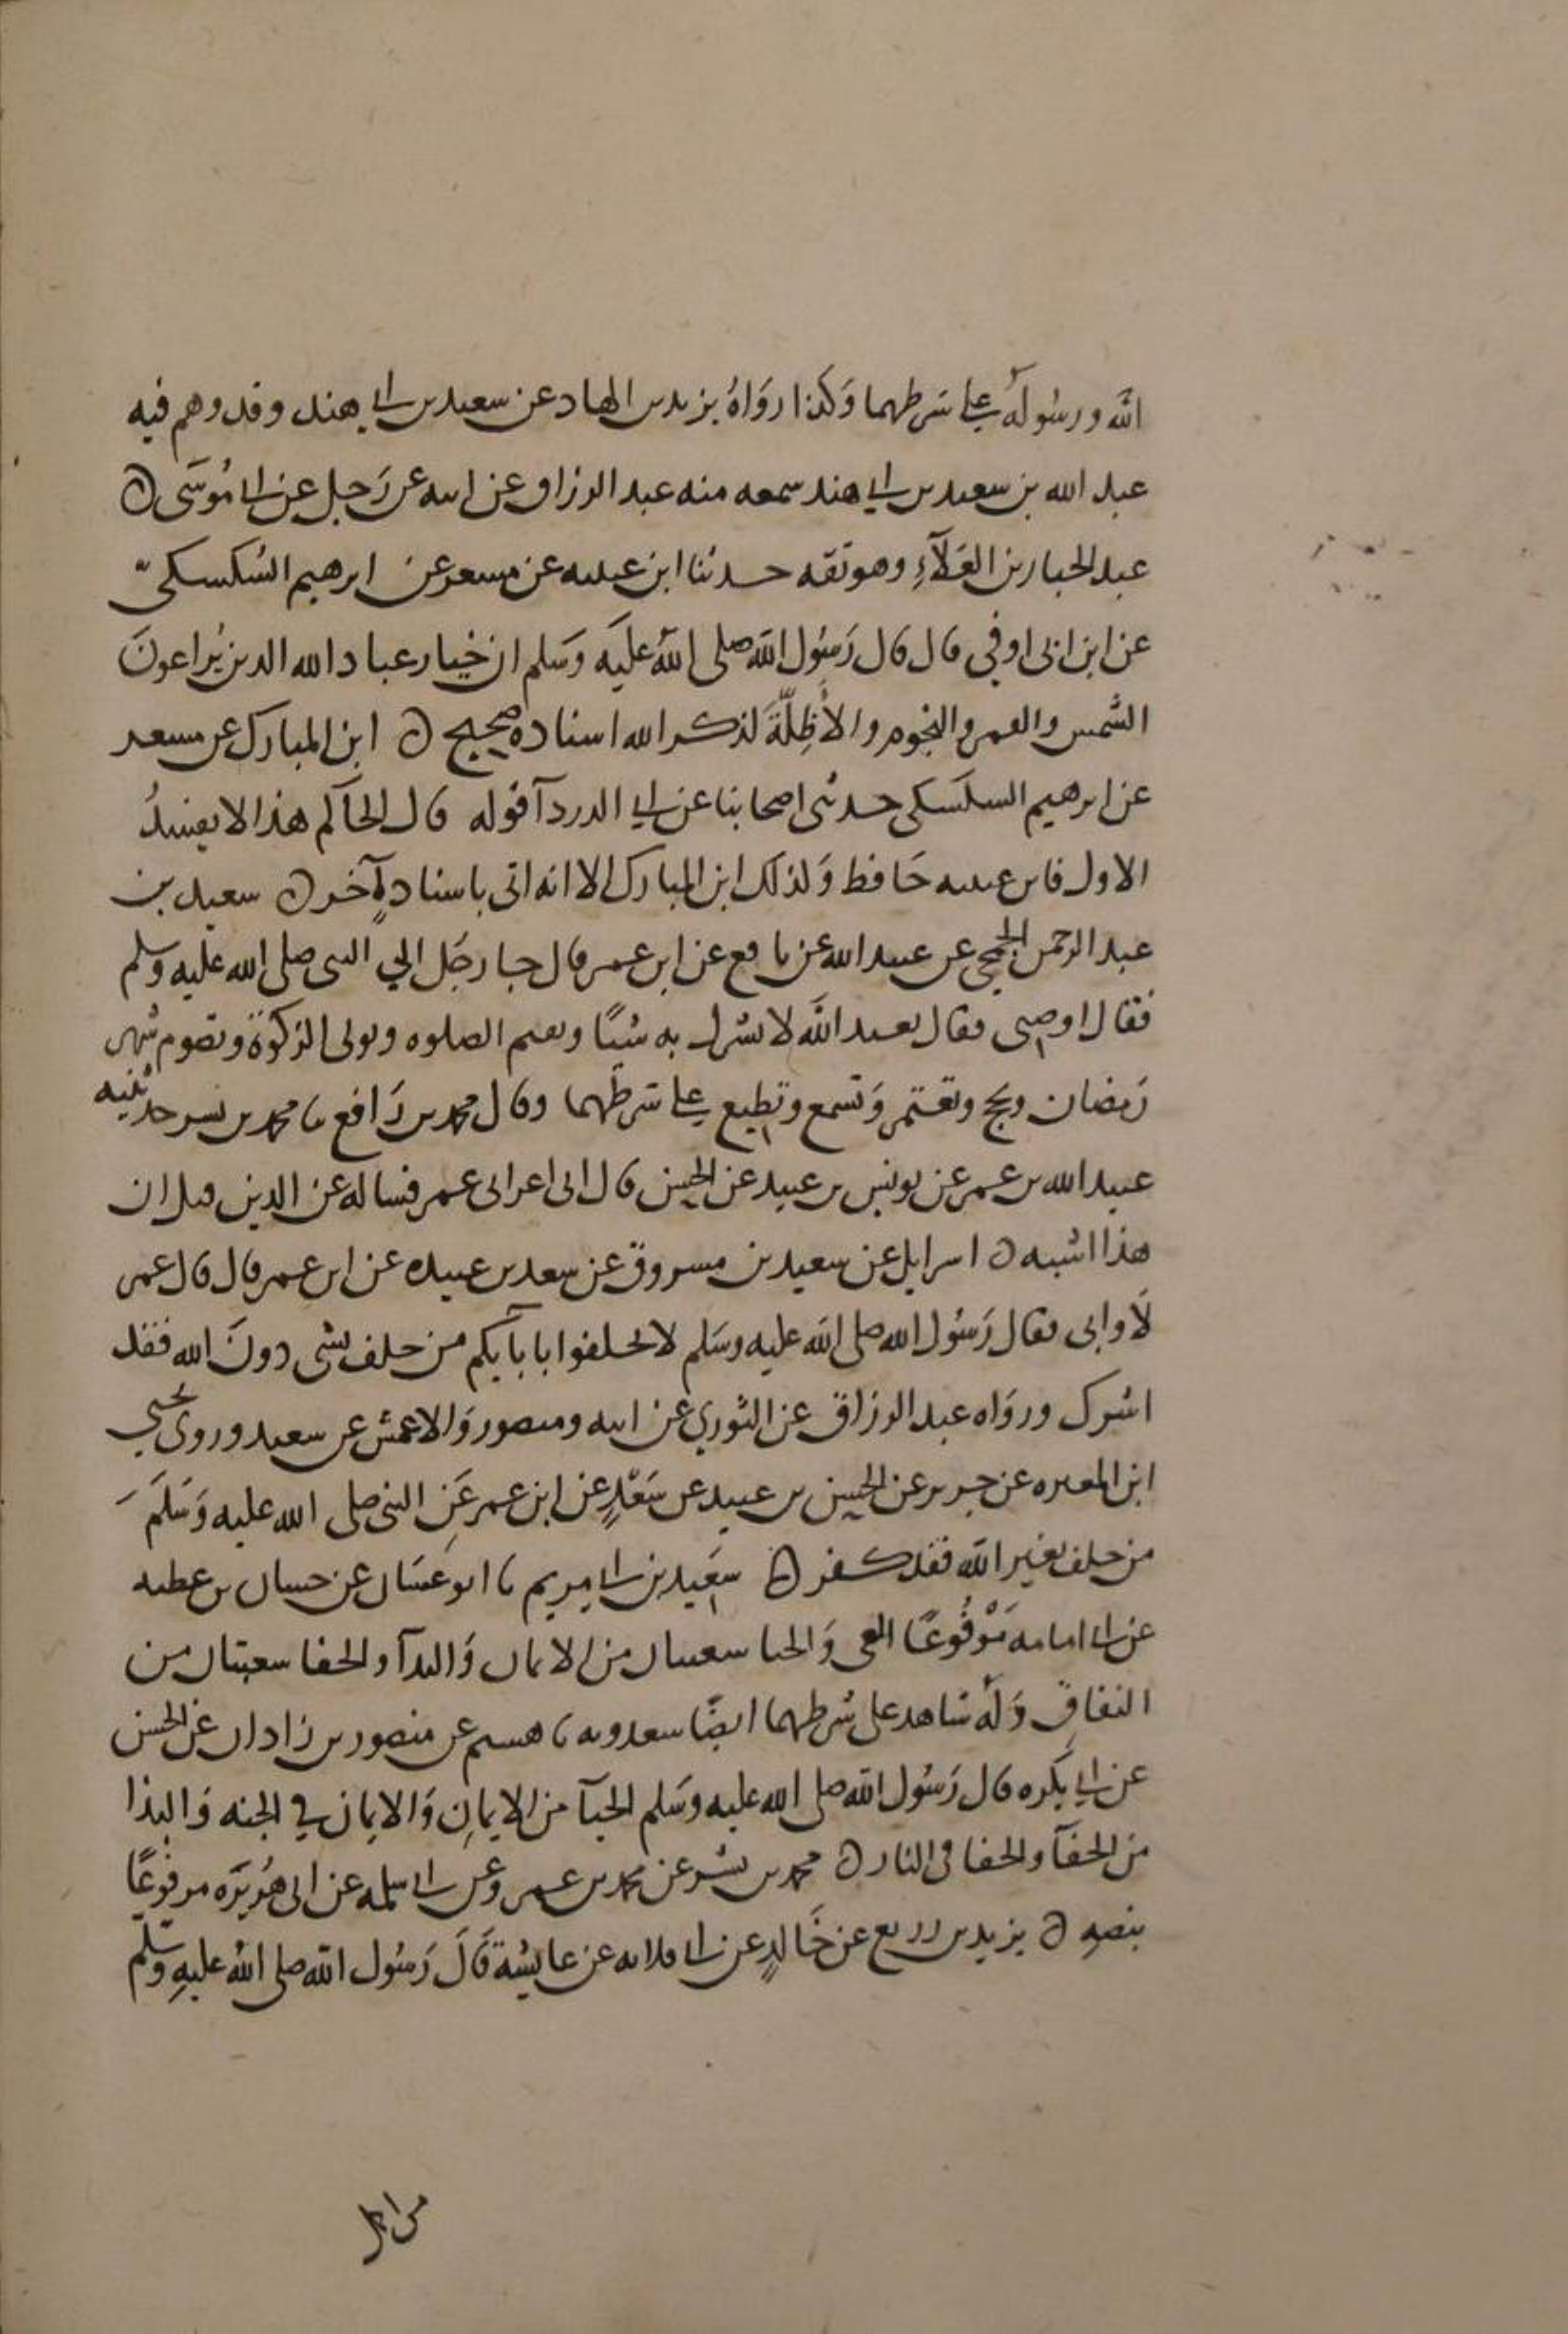 الله ورسوله على شرطهما وكذا رواه يزيد بن الهاد عن سعيد بن ابي هند وقد وهم فيه
عبد الله بن سعيد بن ابي هند سمعه منه عبد الرزاق عن ابيه عن رجل عن ابي موسى ه
عبد الجبار بن العلاء وهو ثقه حدثنا ابن عيينه عن مسعر عن ابرهيم السكسكي
عن ابن ابي اوفي قال قال رسول الله صلى الله عليه وسلم ان خيار عباد الله الذين يراعون
الشمس والقمر والنجوم والأظلة لذكر الله اسناده صحيح ه ابن المبارك عن مسعر
عن ابرهيم السكسكي حدثني اصحابنا عن ابي الدردآ قوله قال الحاكم هذا لا يفسد
الاول فابن عيينه حافظ وكذلك ابن المبارك الا انه اتى باسناد آخر ه سعيد بن
عبد الرحمن الجمحي عن عبيد الله عن نافع عن ابن عمر قال جا رجل الي النبي صلى الله عليه وسلم
فقال اوصني فقال تعبد الله لا تشرك به شيئا وتقيم الصلوه وتوتي الزكوة وتصوم شهر
رمضان وتحج وتعتمر وتسمع وتطيع على شرطهما وقال محمد بن رافع نا محمد بن بشر حدثنيه
عبيد الله بن عمر عن يونس بن عبيد عن الحسن قال اتى اعرابي عمر فساله عن الدين قيل ان
هذا اشبه ه اسرايل عن سعيد بن مسروق عن سعد بن عبيده عن ابن عمر قال قال عمر
لا وابي فقال رسول الله صلى الله عليه وسلم لا تحلفوا بابآيكم من حلف بشي دون الله فقد
اشرك ورواه عبد الرزاق عن الثوري عن ابيه ومنصور والاعمش عن سعيد وروى يحيي
ابن المغيره عن جرير عن الحسن بن عبيد عن سعد عن ابن عمر عن النبي صلى الله عليه وسلم
من حلف بغير الله فقد كفر ه سعيد بن ابي مريم نا ابو غسان عن حسان بن عطيه
عن ابي امامه مرفوعا العي والحيا شعبتان من الايمان والبذآ والجفا شعبتان من
النفاق وله شاهد على شرطهما ايضا سعدويه نا هشيم عن منصور بن زاذان عن الحسن
عن ابي بكره قال رسول الله صلى الله عليه وسلم الحيآ من الايمان والايمان في الجنه والبذا
من الجفآ والجفا في النار ه محمد بن بشر عن محمد بن عمرو عن ابي سلمه عن ابي هريره مرفوعا
بنصه ه يزيد بن زريع عن خالد عن ابي قلابه عن عايشة قال رسول الله صلى الله عليه وسلم